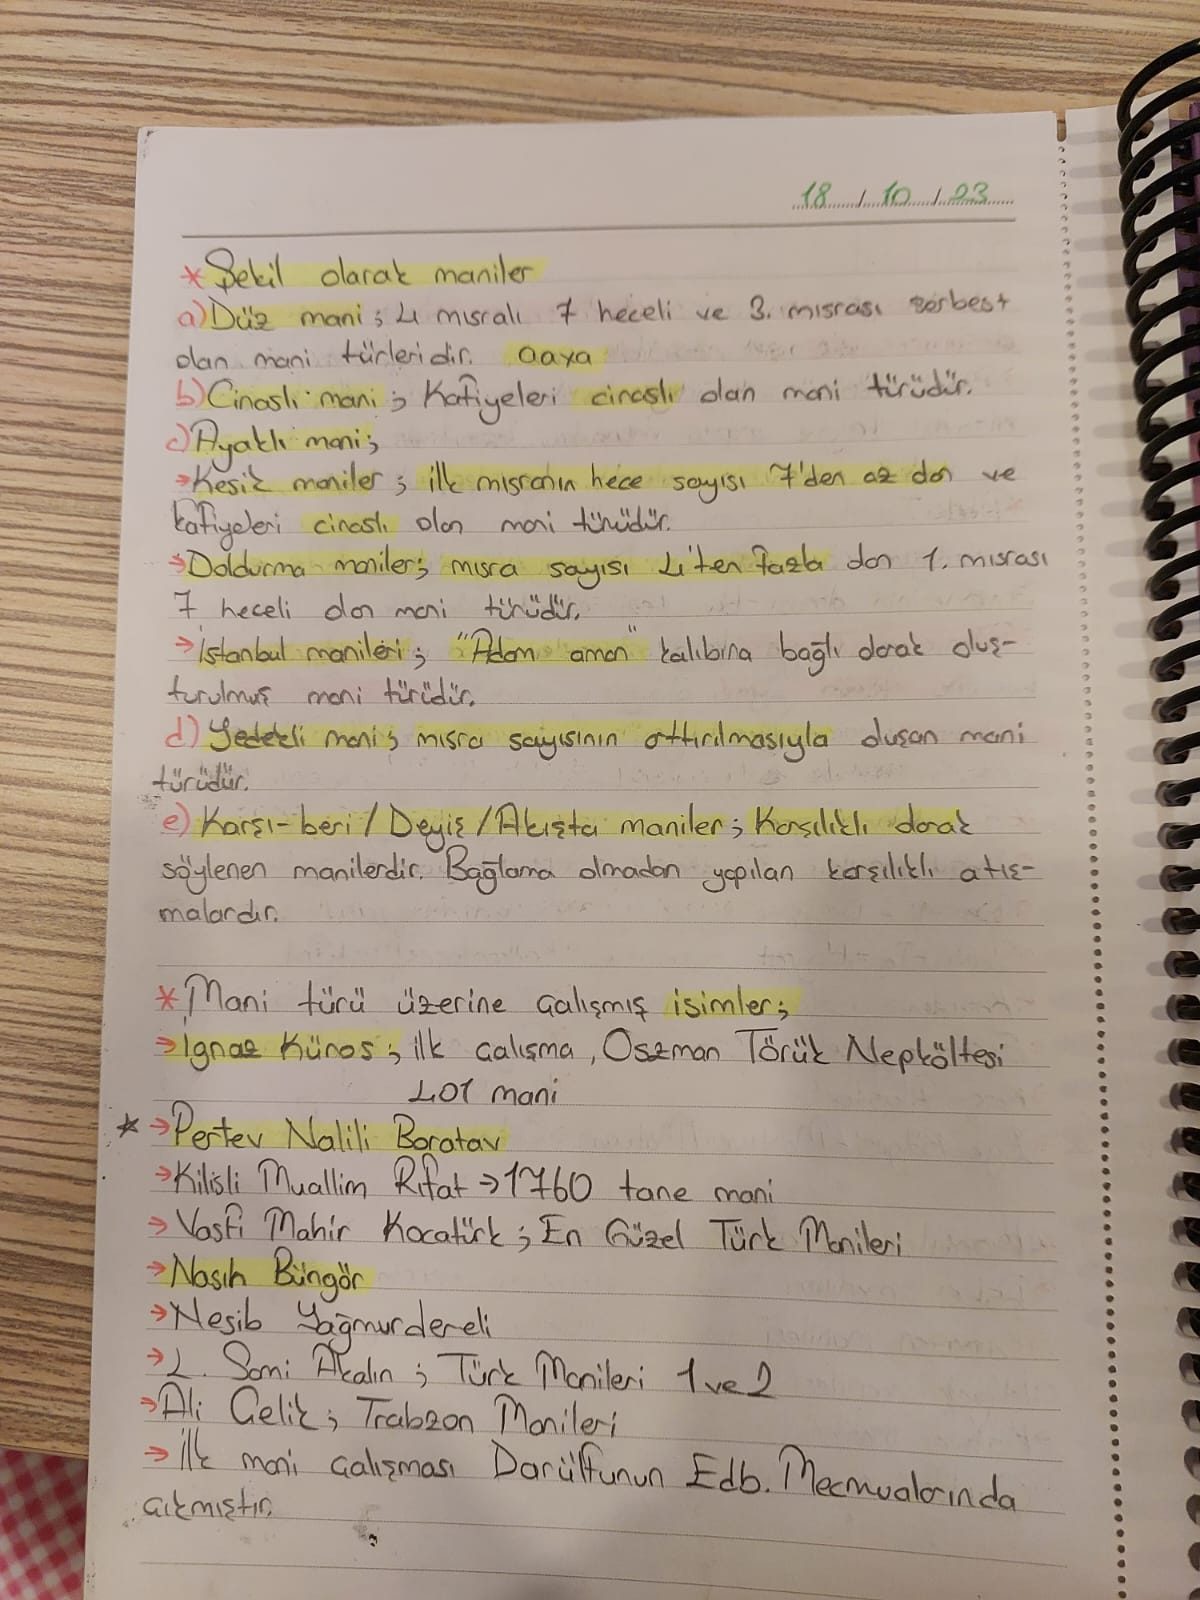 18 / 10 / 23
* Şekil olarak maniler
a) Düz mani; 4 mısralı 7 heceli ve 3. mısrası serbest
olan mani türleridir. aaxa
b) Cinaslı mani; Kafiyeleri cinaslı olan mani türüdür.
c) Ayaklı mani;
→ Kesik maniler; ilk mısranın hece sayısı 7'den az olan ve
kafiyeleri cinaslı olan mani türüdür.
→ Doldurma maniler; mısra sayısı 4'ten fazla olan 1. mısrası
7 heceli olan mani türüdür.
→ İstanbul manileri; "Adam aman" kalıbına bağlı olarak oluş-
turulmuş mani türüdür.
d) Yedekli mani; mısra sayısının arttırılmasıyla oluşan mani
türüdür.
e) Karşı-beri / Deyiş / Akışta maniler; Karşılıklı olarak
söylenen manilerdir. Bağlama olmadan yapılan karşılıklı atış-
malardır.
* Mani türü üzerine çalışmış isimler;
→ İgnaz Künos; ilk çalışma, Oszman Törük Nepköltesi
401 mani
* → Pertev Nalili Boratav
→ Kilisli Muallim Rıfat → 1760 tane mani
→ Vasfi Mahir Kocatürk; En Güzel Türk Manileri
→ Nasıh Büngör
→ Nesib Yağmurdereli
→ L. Sami Akalın; Türk Manileri 1 ve 2
→ Ali Çelik; Trabzon Manileri
→ İlk mani çalışması Darülfunun Edb. Mecmualarında
çıkmıştır.